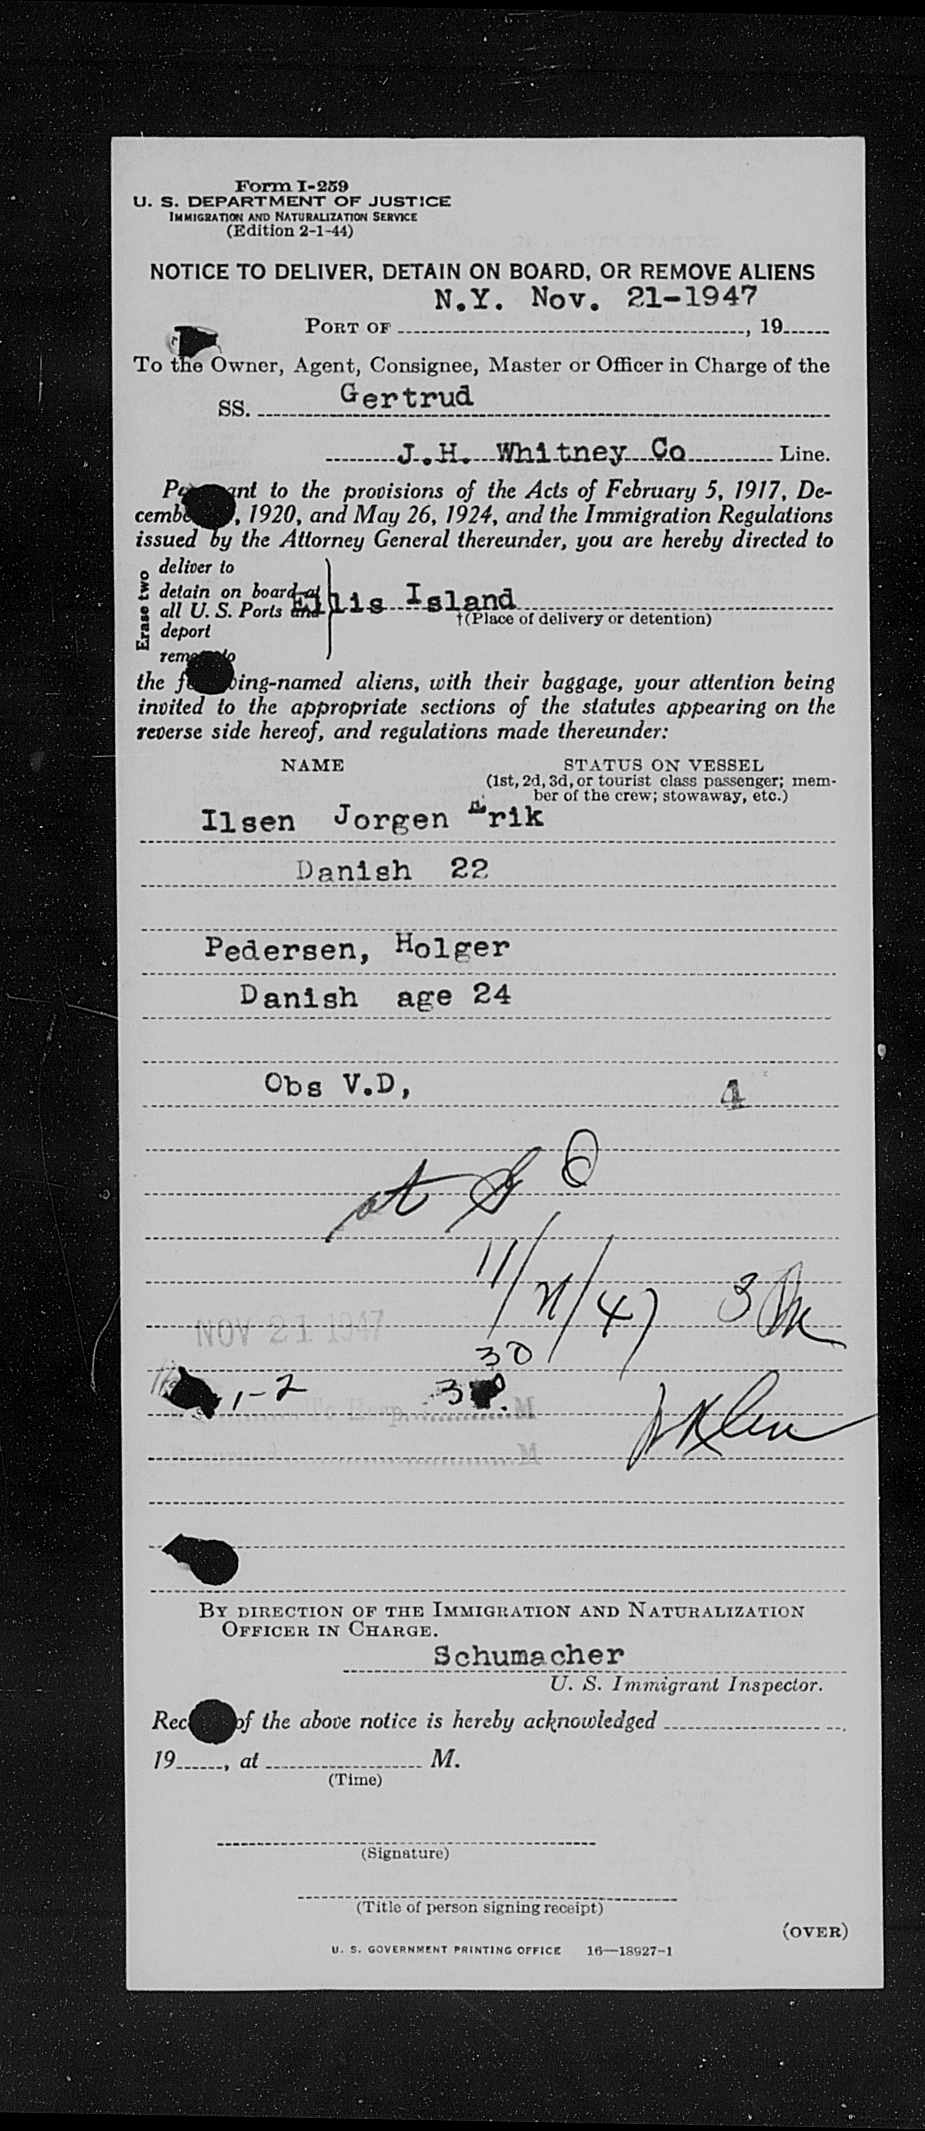 Form I-259
U. S. DEPARTMENT OF JUSTICE
IMMIGRATION AND NATURALIZATION SERVICE
(Edition 2-1-44)
NOTICE TO DELIVER, DETAIN ON BOARD, OR REMOVE ALIENS
N.Y. Nov. 21-1947
PORT OF , 19
To the Owner, Agent, Consignee, Master or Officer in Charge of the
SS. Gertrud
J.H. Whitney Co Line.
ant to the provisions of the Acts of February 5, 1917, De-
cembe , 1920, and May 26, 1924, and the Immigration Regulations
issued by the Attorney General thereunder, you are hereby directed to
Erase two
deliver to
detain on board at
all U. S. Ports and
deport
Ellis Island
†(Place of delivery or detention)
the f ing-named aliens, with their baggage, your attention being
invited to the appropriate sections of the statutes appearing on the
reverse side hereof, and regulations made thereunder:
NAME STATUS ON VESSEL
(1st, 2d, 3d, or tourist class passenger; mem-
ber of the crew; stowaway, etc.)
Ilsen Jorgen Erik
Danish 22
Pedersen, Holger
Danish age 24
Obs V.D, 4
at
11/21/47 3
NOV 21 1947
30
1-2
M
M
BY DIRECTION OF THE IMMIGRATION AND NATURALIZATION
OFFICER IN CHARGE.
Schumacher
U. S. Immigrant Inspector.
Rec of the above notice is hereby acknowledged
19 , at M.
(Time)
(Signature)
(Title of person signing receipt)
(OVER)
U. S. GOVERNMENT PRINTING OFFICE 16—18927-1